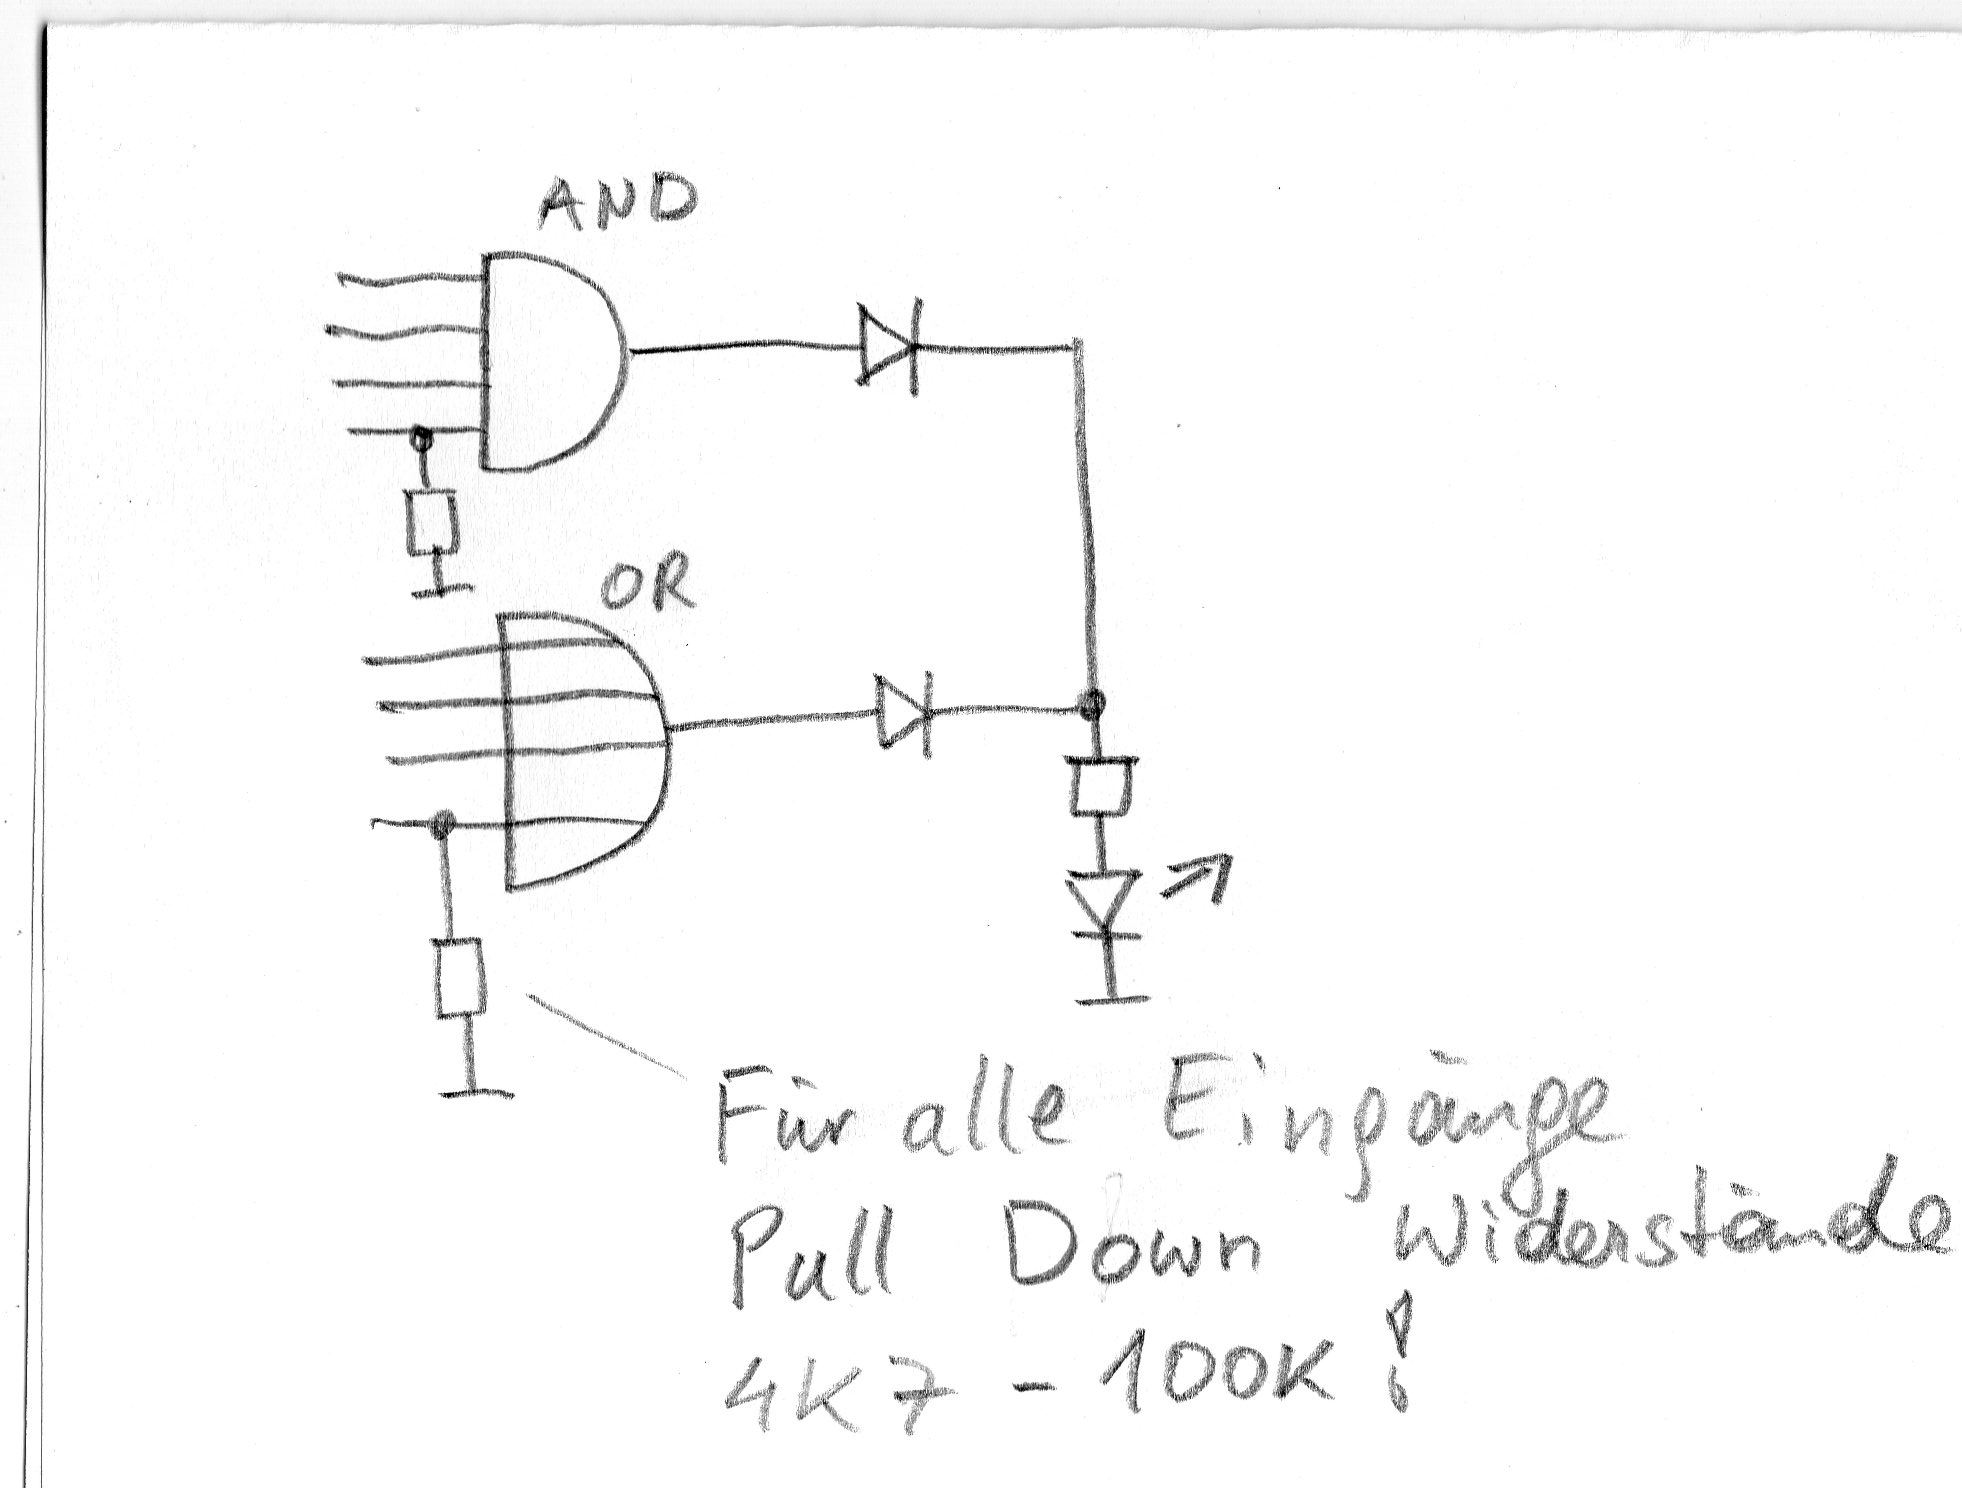 AND
OR
Für alle Eingänge
Pull Down Widerstände
4K7 - 100K!